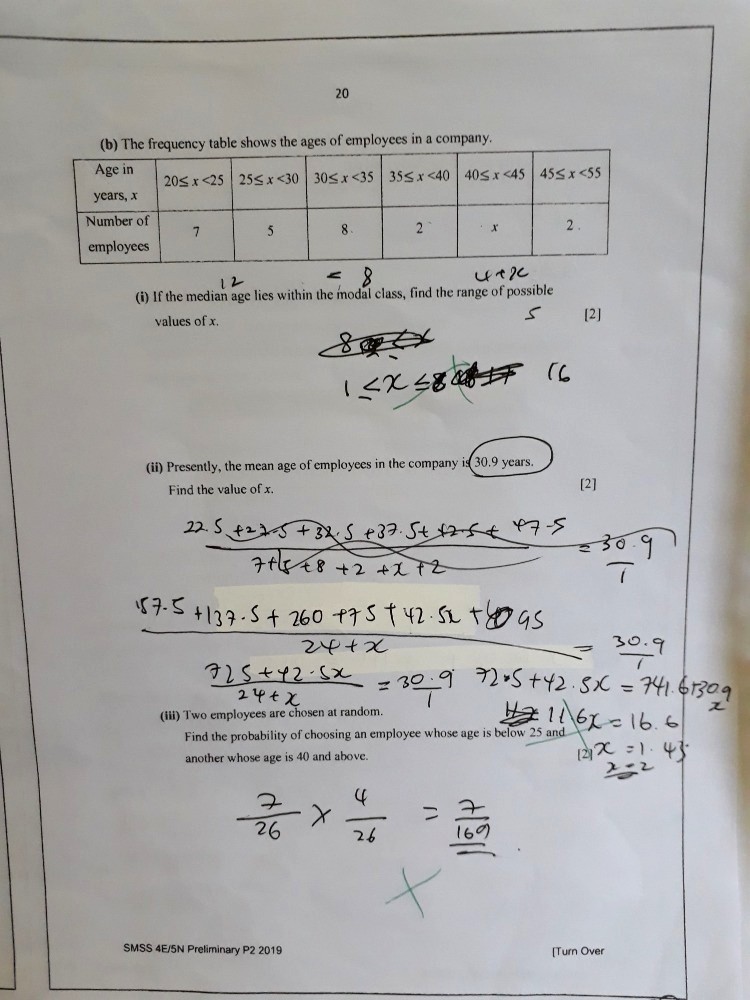 20
(b) The frequency table shows the ages of employees in a company.
Age in years, x 20≤ x <25 25≤ x <30 30≤ x <35 35≤ x <40 40≤ x <45 45≤ x <55
Number of employees 7 5 8 2 x 2
12 = 8 4+x
(i) If the median age lies within the modal class, find the range of possible
values of x. 5 [2]
1 ≤ x ≤ 16
(ii) Presently, the mean age of employees in the company is 30.9 years.
Find the value of x. [2]
22.5 +27.5 +32.5 +37.5+ 42.5+ 47.5
7+5+8+2+x+2
= 30.9
1
157.5 +137.5 + 260 +75 + 42.5x + 95
24+x
= 30.9
1
725+42.5x
24+x
= 30.9
1
725+42.5x = 741.6+30.9x
(iii) Two employees are chosen at random.
11.6x = 16.6
Find the probability of choosing an employee whose age is below 25 and
another whose age is 40 and above. [2]
x = 1.43
x = 2
7
26
×
4
26
=
7
169
SMSS 4E/5N Preliminary P2 2019 [Turn Over